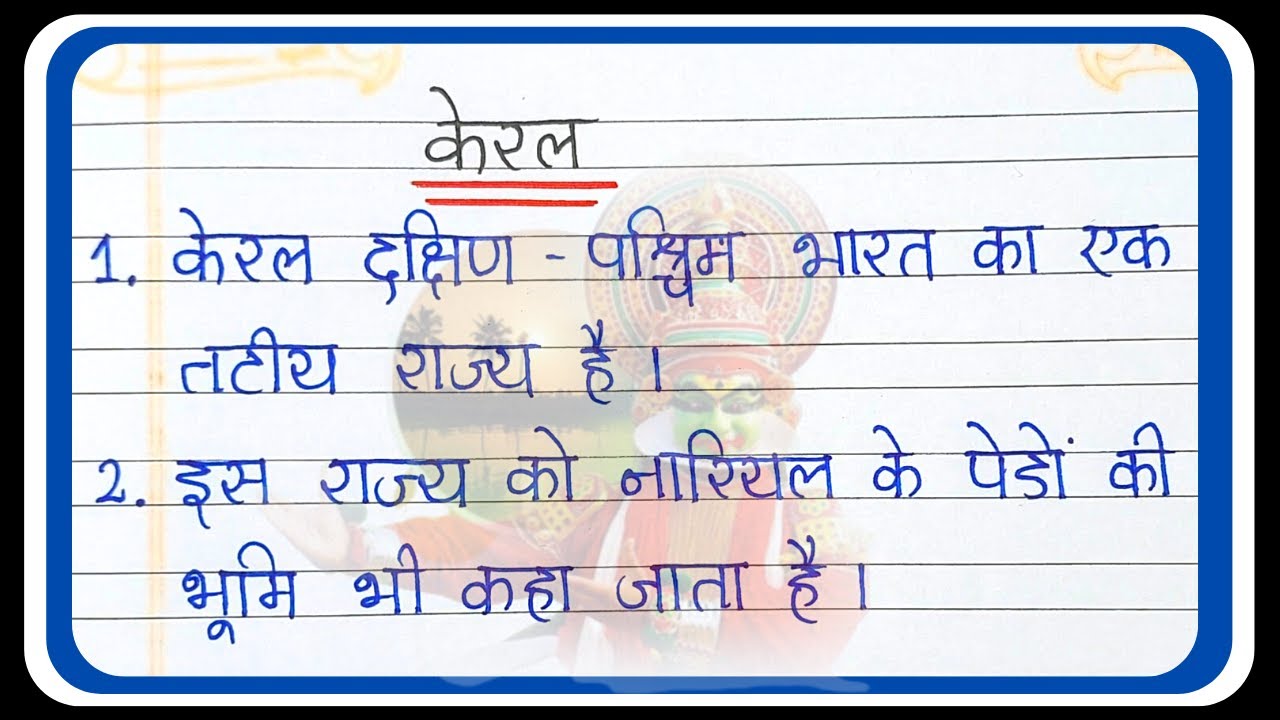 केरल
1. केरल दक्षिण - पश्चिम भारत का एक
तटीय राज्य है।
2. इस राज्य को नारियल के पेडों की
भूमि भी कहा जाता है।